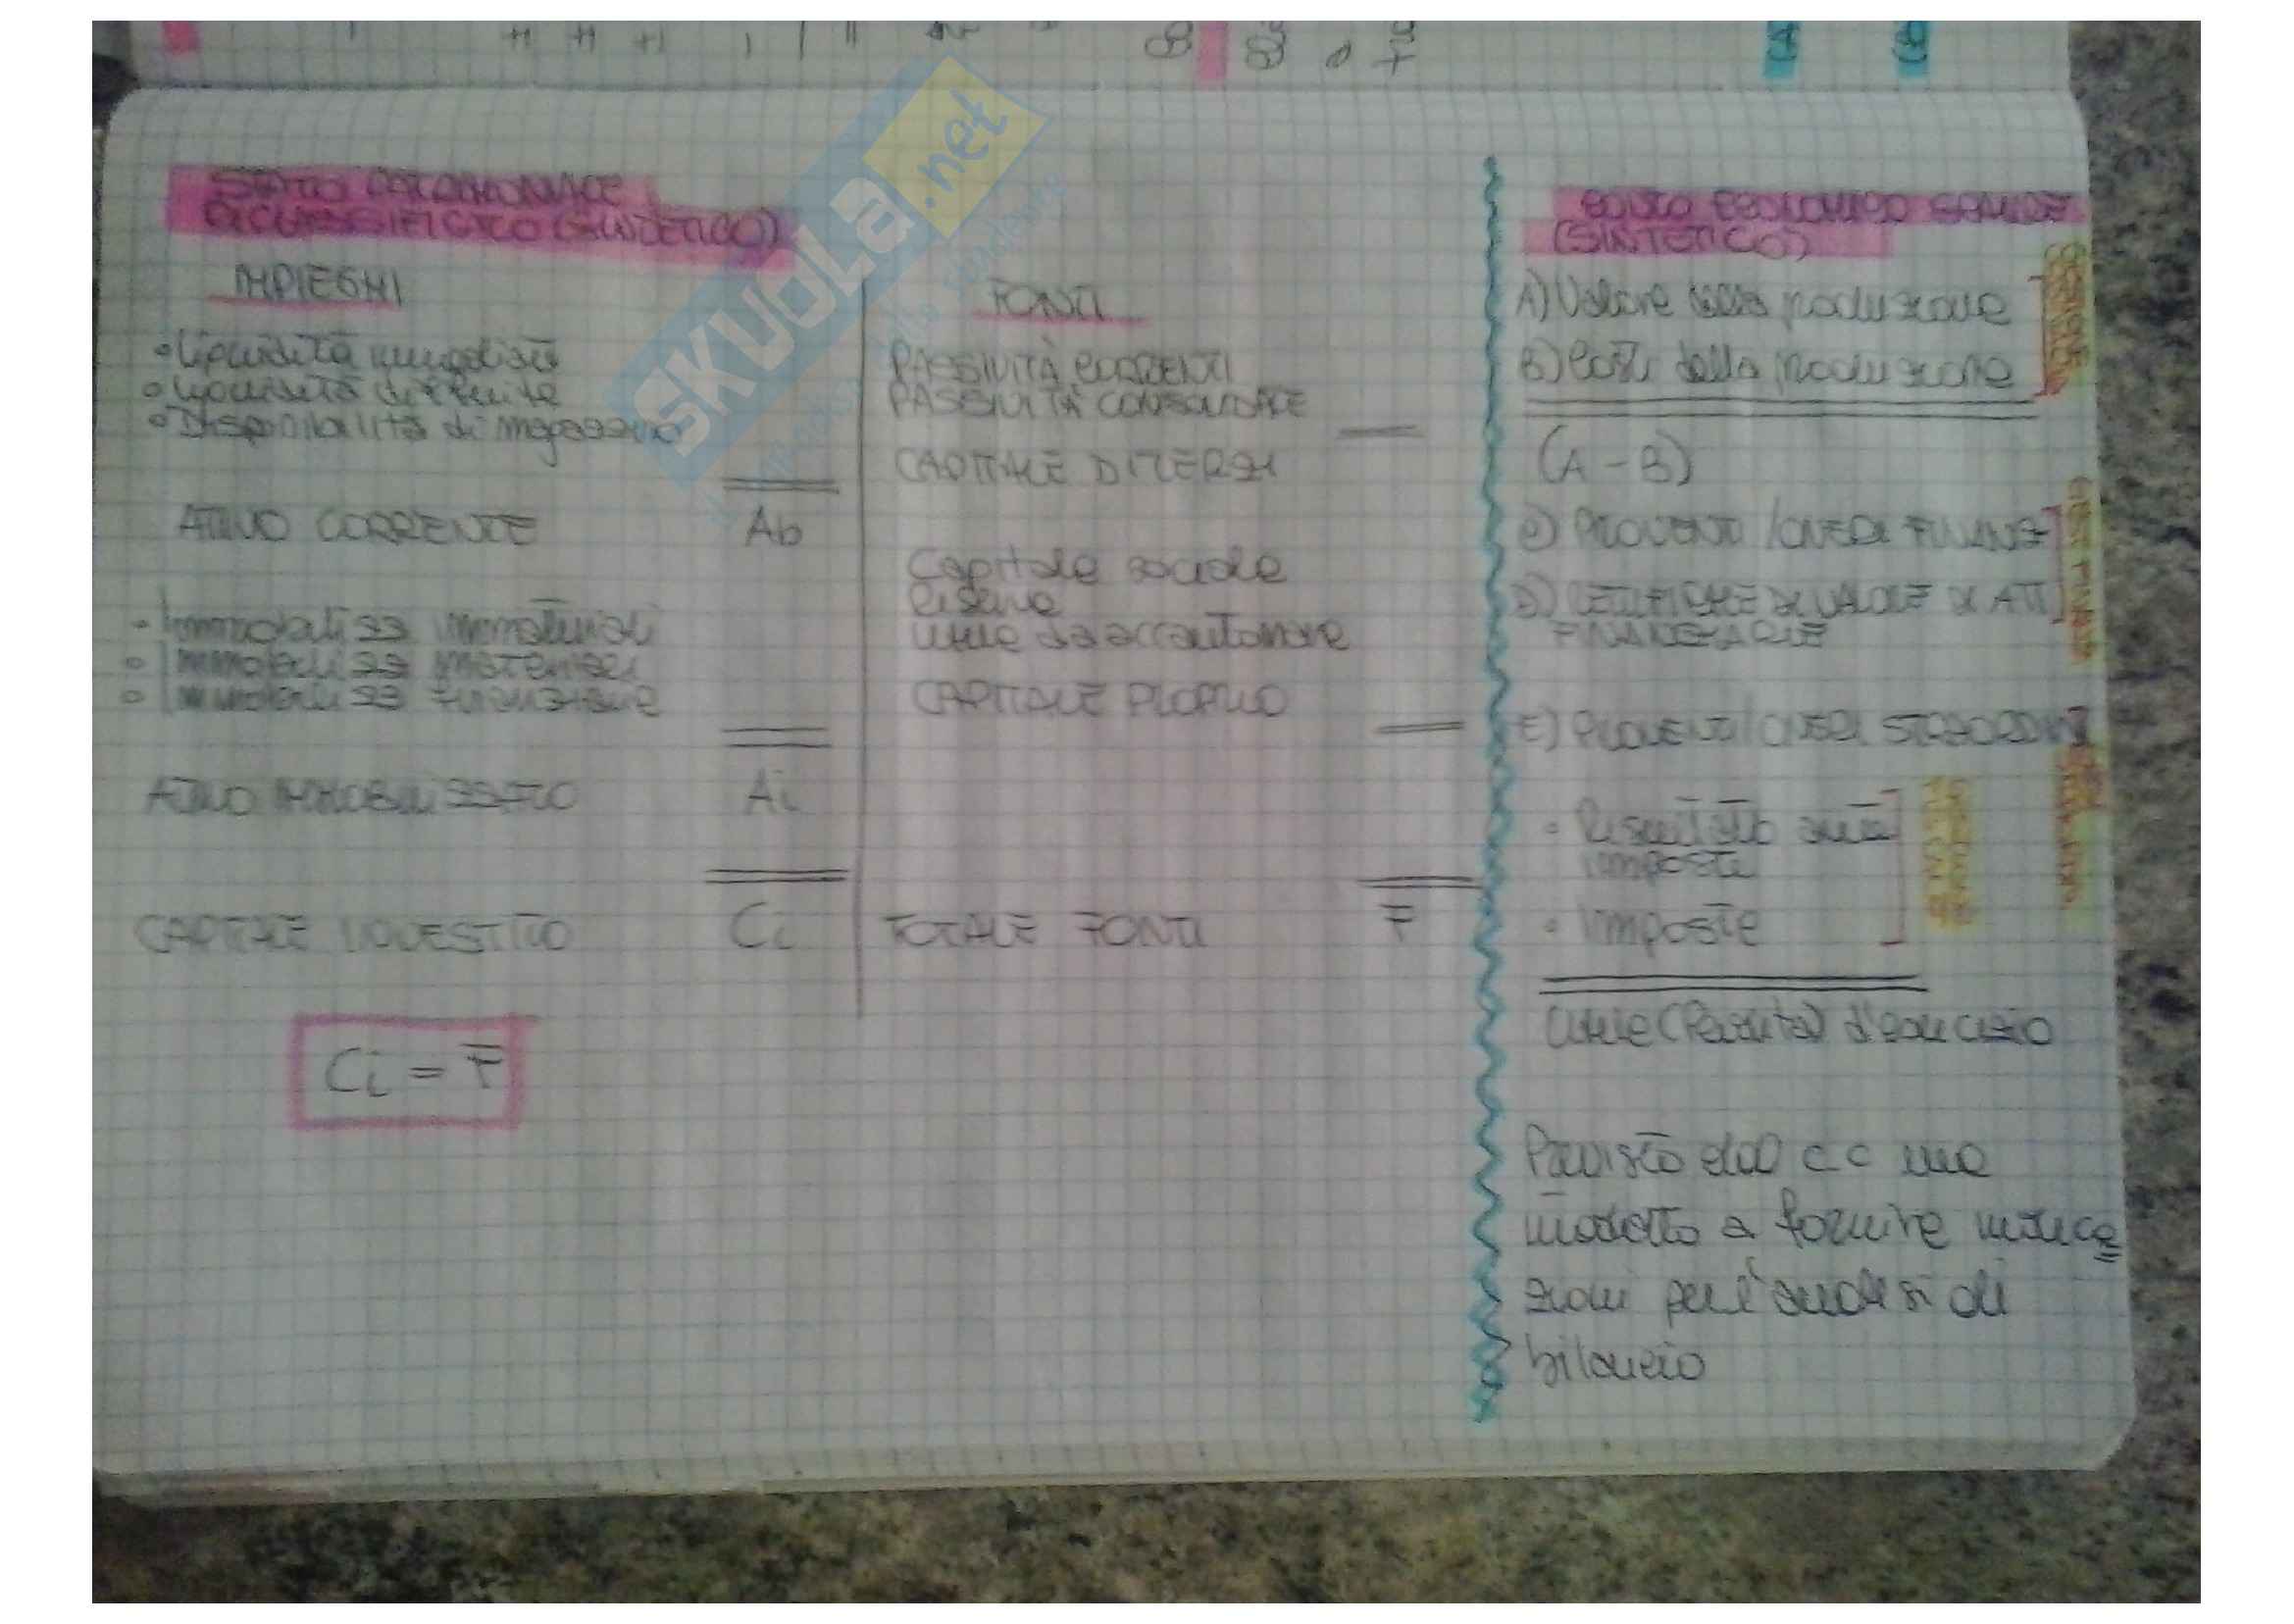 STATO PATRIMONIALE
RICLASSIFICATO (SINTETICO)
IMPIEGHI
• Liquidità immediate
• Liquidità differite
• Disponibilità di magazzino
ATTIVO CORRENTE Ab
• Immobilizz immateriali
• Immobilizz materiali
• Immobilizz finanziarie
ATTIVO IMMOBILIZZATO Ai
CAPITALE INVESTITO Ci
Ci = F
FONTI
PASSIVITÀ CORRENTI
PASSIVITÀ CONSOLIDATE
CAPITALE DI TERZI
Capitale sociale
Riserve
Utile da accantonare
CAPITALE PROPRIO
TOTALE FONTI F
CONTO ECONOMICO
(SINTETICO)
A) Valore della produzione
B) Costi della produzione
(A - B)
C) PROVENTI / ONERI FINANZ
D) RETTIFICHE DI VALORE DI ATT
FINANZIARIE
E) PROVENTI / ONERI STRAORDIN
• Risultato ante
imposte
• Imposte
Utile (Perdita) d'esercizio
Previsto dal c.c ma
inadatto a fornire indica
zioni per l'analisi di
bilancio
SKUOLA.net